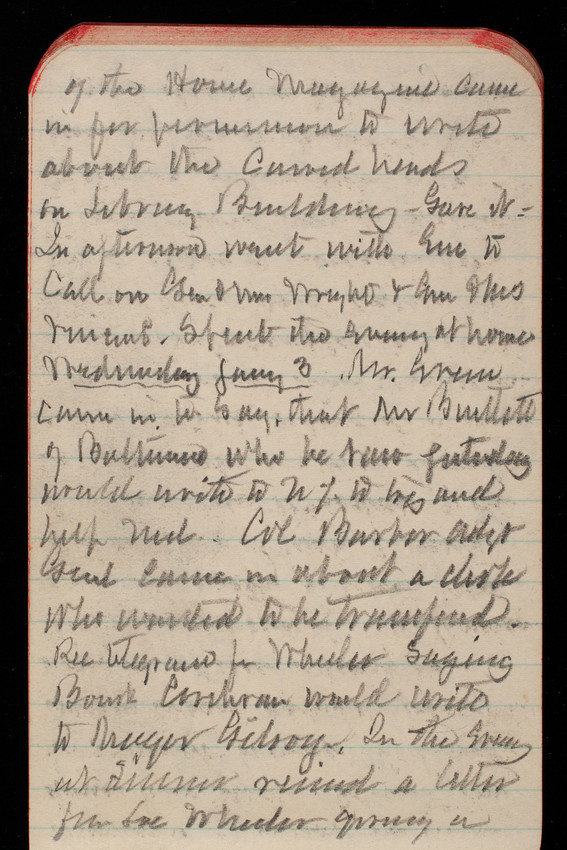 of the Home Magazine came
in for permission to write
about the Carved heads
on Library Building - Gave it =
In afternoon went with Em to
Call on Genl & Mrs Wright & Em & Mrs
Vincent. Spent the evening at home
Wednesday Jany 3 . Mr. Green
came in to say, that Mr
of Baltimore who he saw yesterday
would write to N.Y. to try and
help Ned. Col Barbor Adjt
Genl came in about a clerk
who wanted to be transfered.
Rec telegram fr Wheeler saying
Bourk Cochran would write
to Mayor Gilroy. In the evening
at dinner recived a letter
from Joe Wheeler giving a